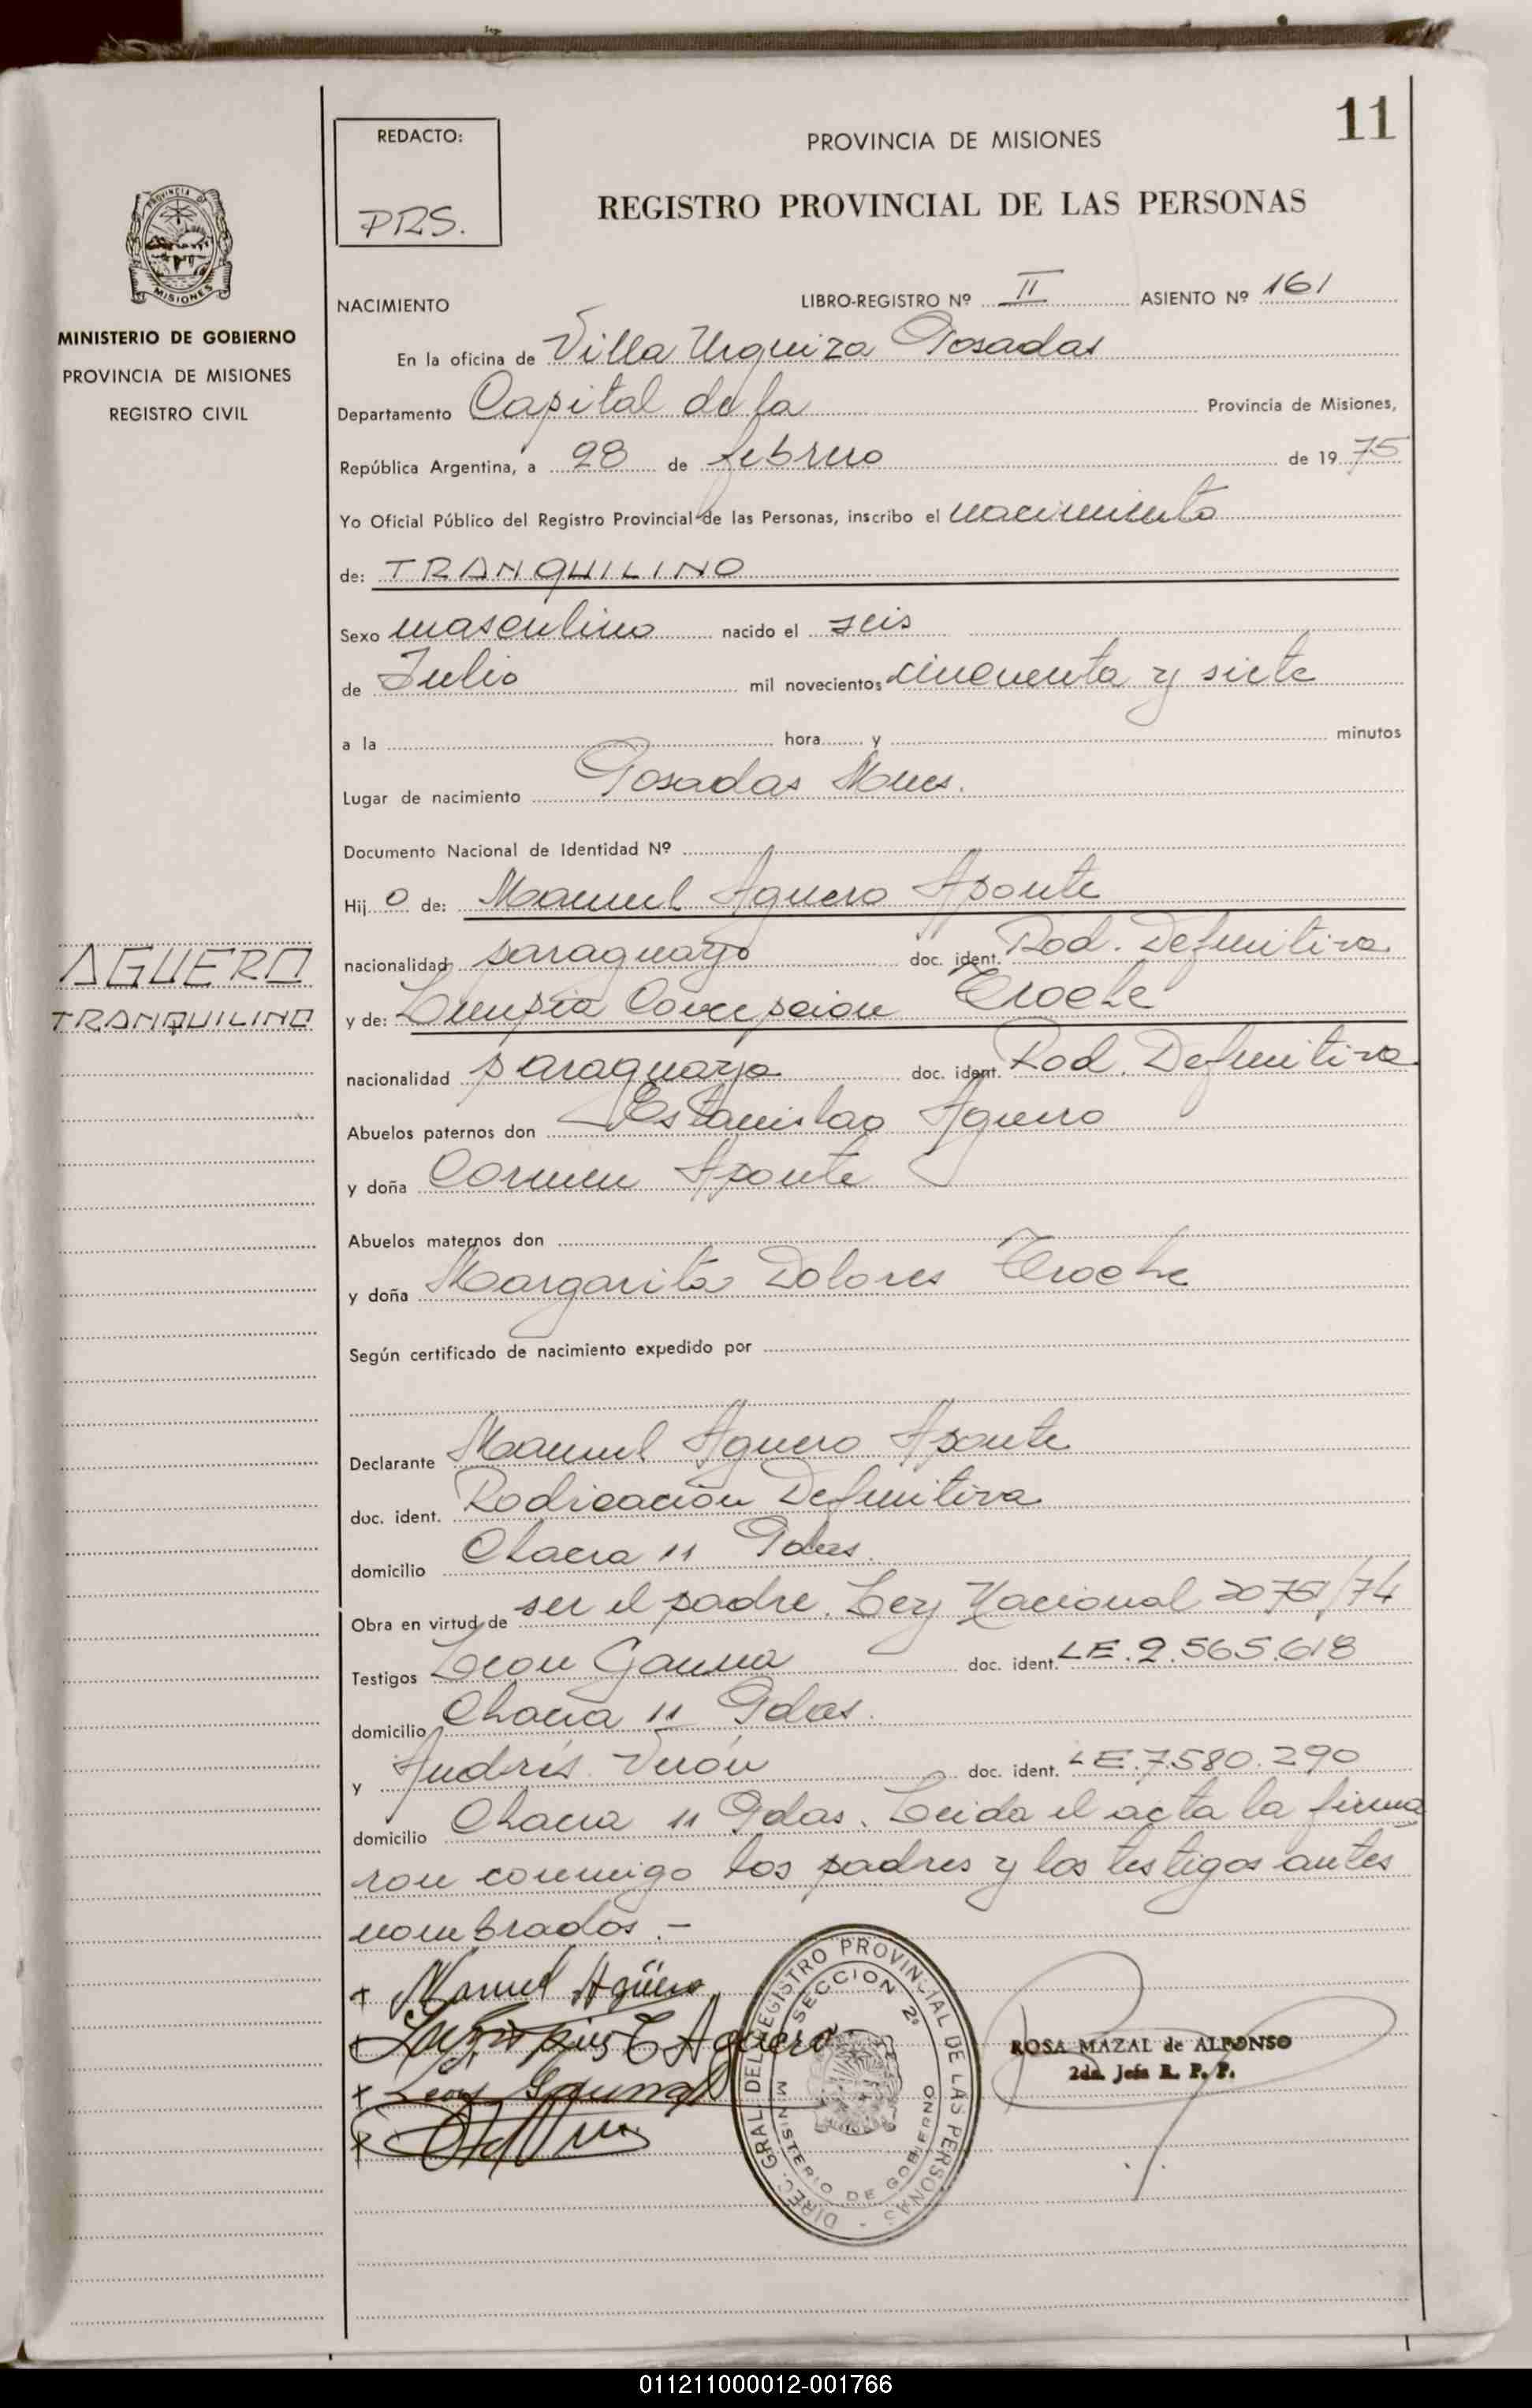 11
REDACTO:
PRS.
PROVINCIA DE MISIONES
REGISTRO PROVINCIAL DE LAS PERSONAS
PROVINCIA DE
MISIONES
MINISTERIO DE GOBIERNO
PROVINCIA DE MISIONES
REGISTRO CIVIL
NACIMIENTO LIBRO-REGISTRO Nº II ASIENTO Nº 161
En la oficina de Villa Urquiza Posadas
Departamento Capital de la Provincia de Misiones,
República Argentina, a 28 de febrero de 1975
Yo Oficial Público del Registro Provincial de las Personas, inscribo el nacimiento
de: TRANQUILINO
Sexo masculino nacido el seis
de Julio mil novecientos cincuenta y siete
a la hora y minutos
Lugar de nacimiento Posadas Mnes.
Documento Nacional de Identidad Nº
Hijo de: Manuel Aguero Aponte
AGUERO
TRANQUILINO
nacionalidad paraguayo doc. ident. Rad. Definitiva
y de: Concepcion Troche
nacionalidad paraguaya doc. ident. Rad. Definitiva
Abuelos paternos don Estanislao Aguero
y doña Carmen Aponte
Abuelos maternos don
y doña Margarita Dolores Troche
Según certificado de nacimiento expedido por
Declarante Manuel Aguero Aponte
doc. ident. Radicación Definitiva
domicilio Chacra 11 Pdas.
Obra en virtud de ser el padre. Ley Nacional 20751/74
Testigos Leon Gauna doc. ident. LE.2.565.618
domicilio Chacra 11 Pdas.
y Andrés Verón doc. ident. LE.7.580.290
domicilio Chacra 11 Pdas. Leida el acta la firma
ron conmigo los padres y los testigos antes
nombrados.-
+ Manuel Agüero
Aguero
+ Leon
DIREC. GRAL. DEL REGISTRO PROVINCIAL DE LAS PERSONAS
SECCION 2º
MINISTERIO DE GOBIERNO
ROSA MAZAL de ALFONSO
2da. Jefa R. P. P.
011211000012-001766